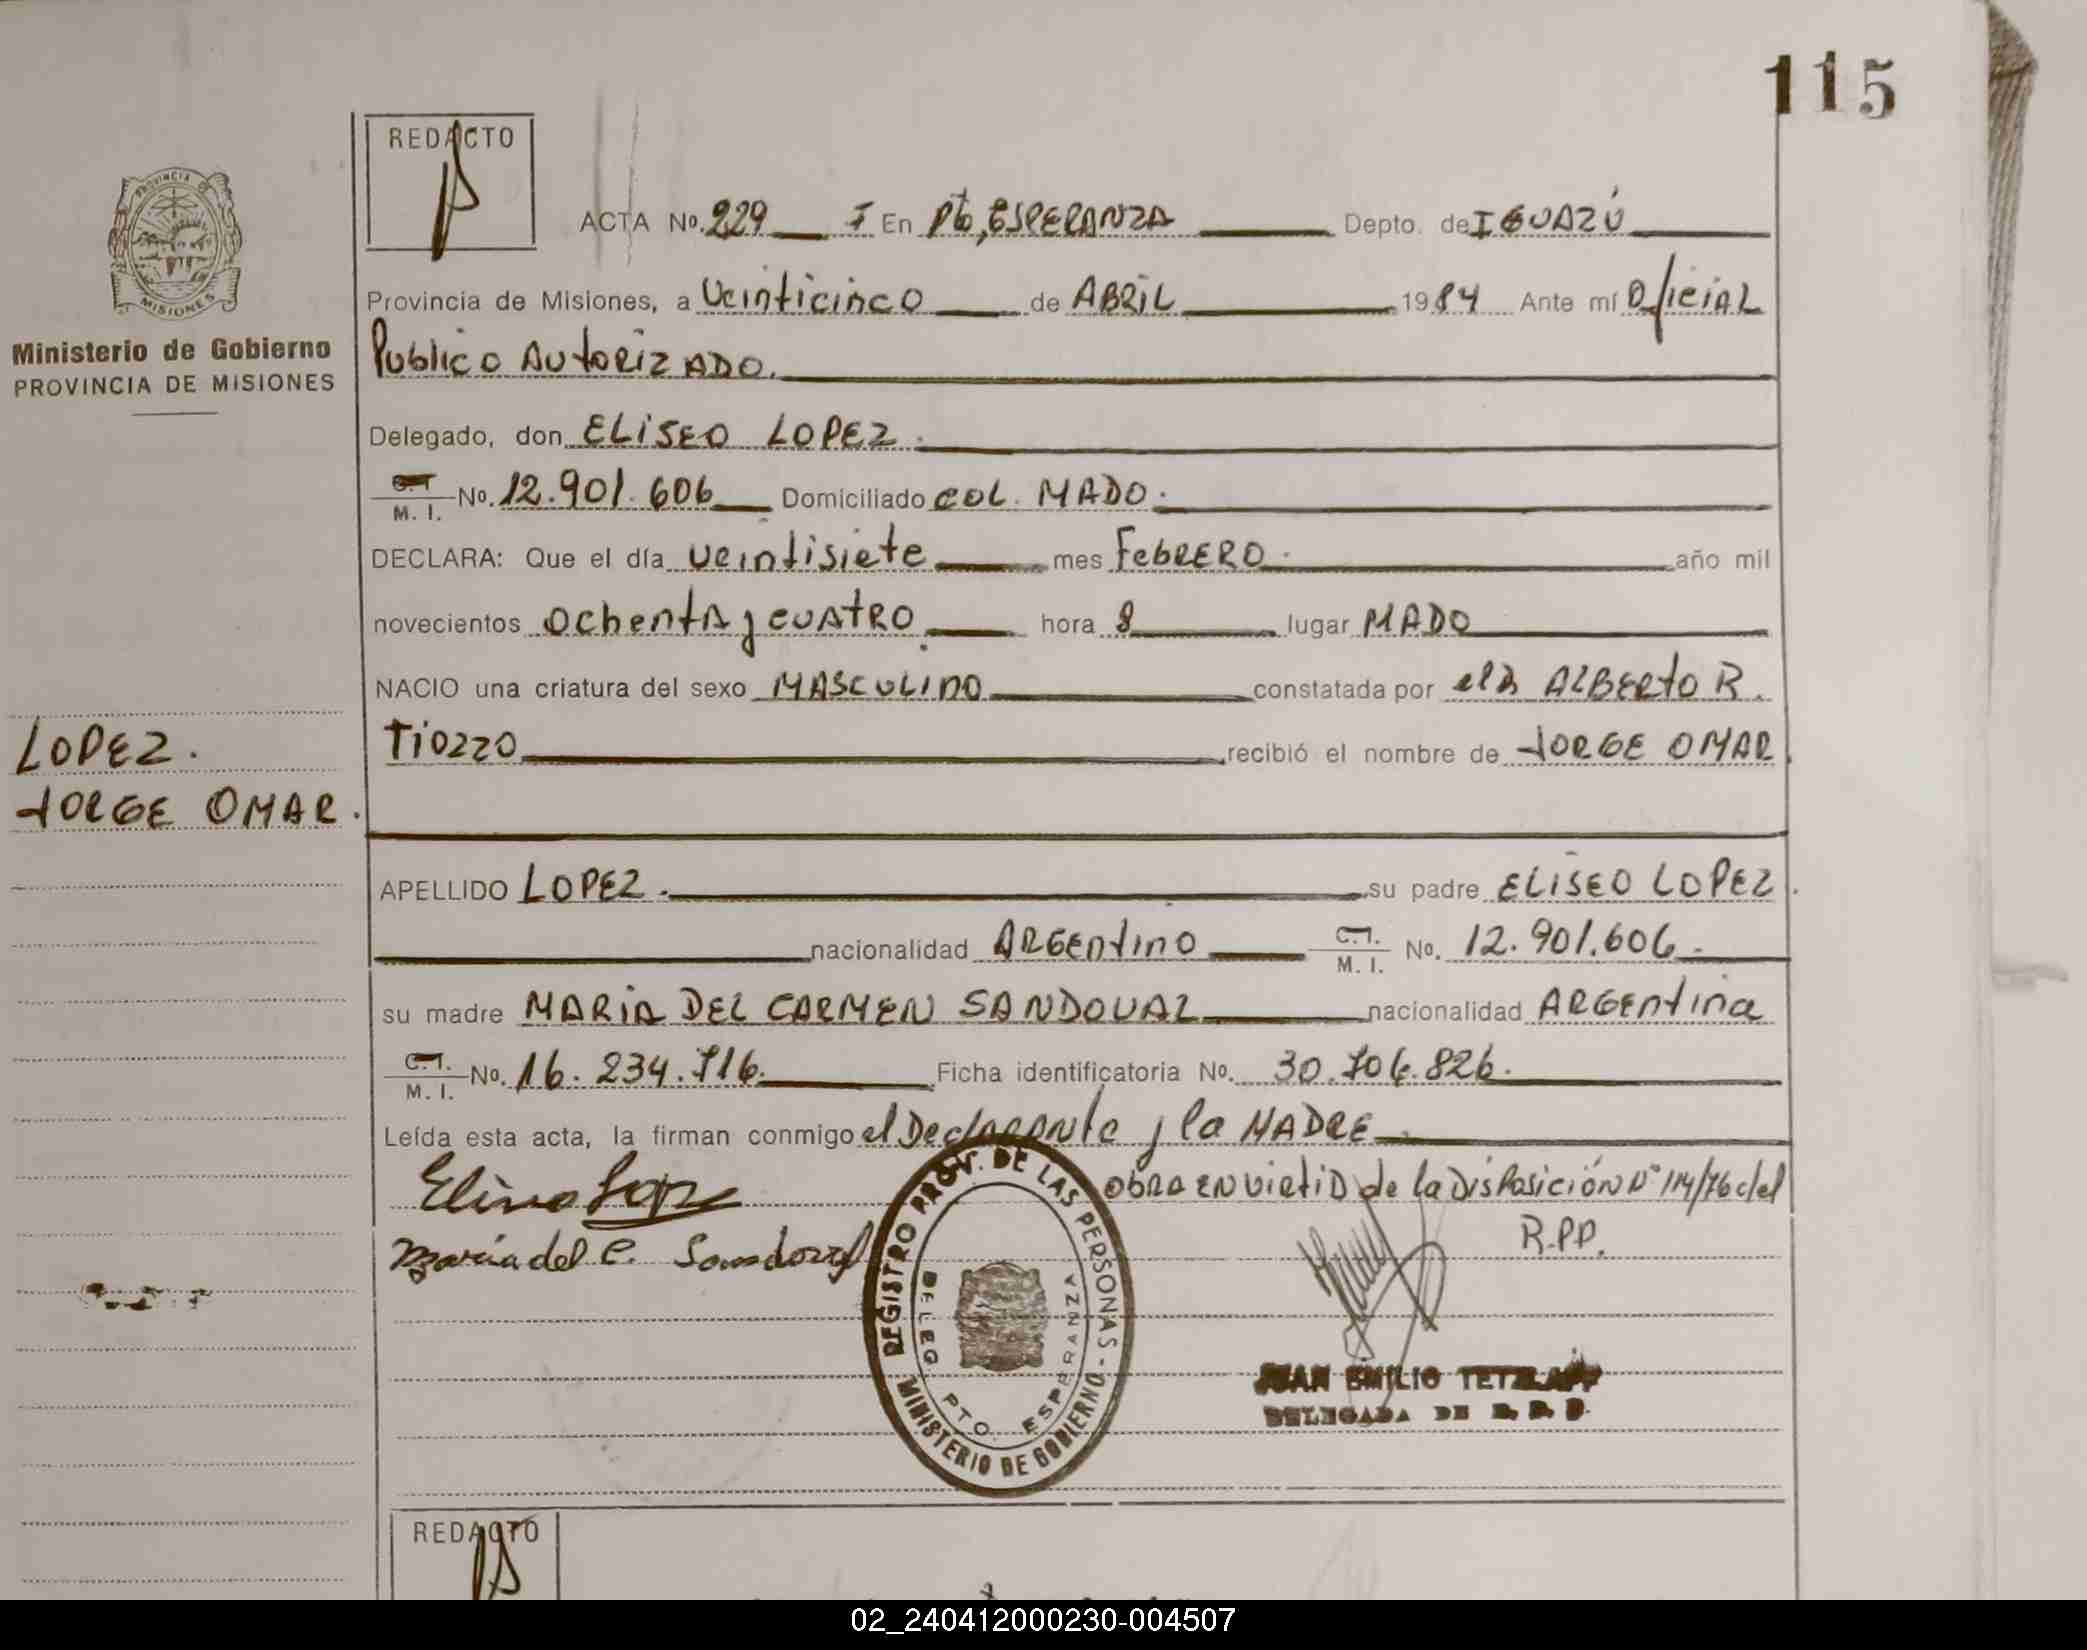 115
REDACTO
ACTA No. 229 I En Pto, ESPERANZA Depto. de IGUAZÚ
PROVINCIA DE
MISIONES
Provincia de Misiones, a Veinticinco de ABRIL 1984 Ante mí Oficial
Ministerio de Gobierno
PROVINCIA DE MISIONES
Publico AUtORIZADO.
Delegado, don ELISEO LOPEZ.
C.I. M. I. No. 12.901.606 Domiciliado COL. MADO.
DECLARA: Que el día Veintisiete mes FebRERO. año mil
novecientos Ochenta y CUAtRO hora 8 lugar MADO
NACIO una criatura del sexo MASCULINO constatada por el DR ALBERtO R.
LOPEZ.
TiOZZO recibió el nombre de JORGE OMAR
JORGE OMAR.
APELLIDO LOPEZ. su padre ELISEO LOPEZ
nacionalidad ARGEntinO C.I. M. I. No. 12.901.606.
su madre MARIA DEL CARMEN SANDOVAL nacionalidad ARGEntina
C.I. M. I. No. 16.234.716. Ficha identificatoria No. 30.706.826.
Leída esta acta, la firman conmigo el DeclaRANte y la MADRE
Eliseo Lopez
OBRA EN VIRtID de la DisPosición N° 114/76 del
R.P.P.
Maria del C. Sandoval
REGISTRO PROV. DE LAS PERSONAS - MINISTERIO DE GOBIERNO
DELEG. PTO. ESPERANZA
JUAN EMILIO TETZLAFF
DELEGADA DE R. P. P.
REDACTO
02_240412000230-004507